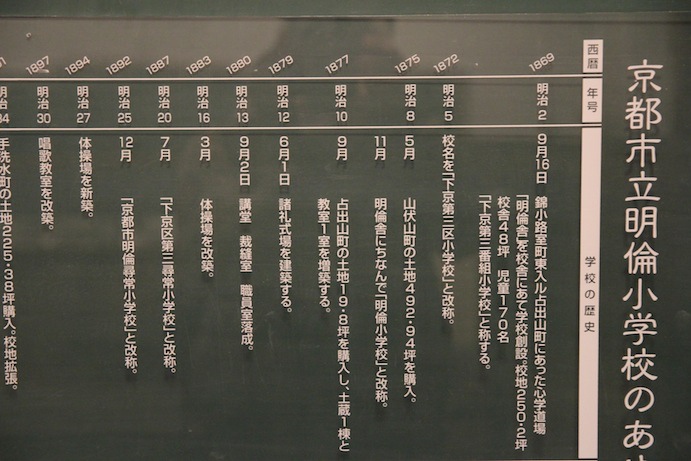 京都市立明倫小学校のあ
西暦
年号
学校の歴史
1869
明治2
9月16日
錦小路室町東入ル占出山町にあった心学道場
「明倫舎」を校舎にあて学校創設。校地250・2坪
校舎48坪 児童170名
「下京第三番組小学校」と称する。
1872
明治5
校名を「下京第三区小学校」と改称。
1875
明治8
5月
山伏山町の土地492・94坪を購入。
11月
明倫舎にちなんで「明倫小学校」と改称。
1877
明治10
9月
占出山町の土地19・8坪を購入し、土蔵1棟と
教室1室を増築する。
1879
明治12
6月1日
諸礼式場を建築する。
1880
明治13
9月2日
講堂 裁縫室 職員室落成。
1883
明治16
3月
体操場を改築。
1887
明治20
7月
「下京区第三尋常小学校」と改称。
1892
明治25
12月
「京都市明倫尋常小学校」と改称。
1894
明治27
体操場を新築。
1897
明治30
唱歌教室を改築。
明治34
手洗水町の土地225・38坪購入。校地拡張。